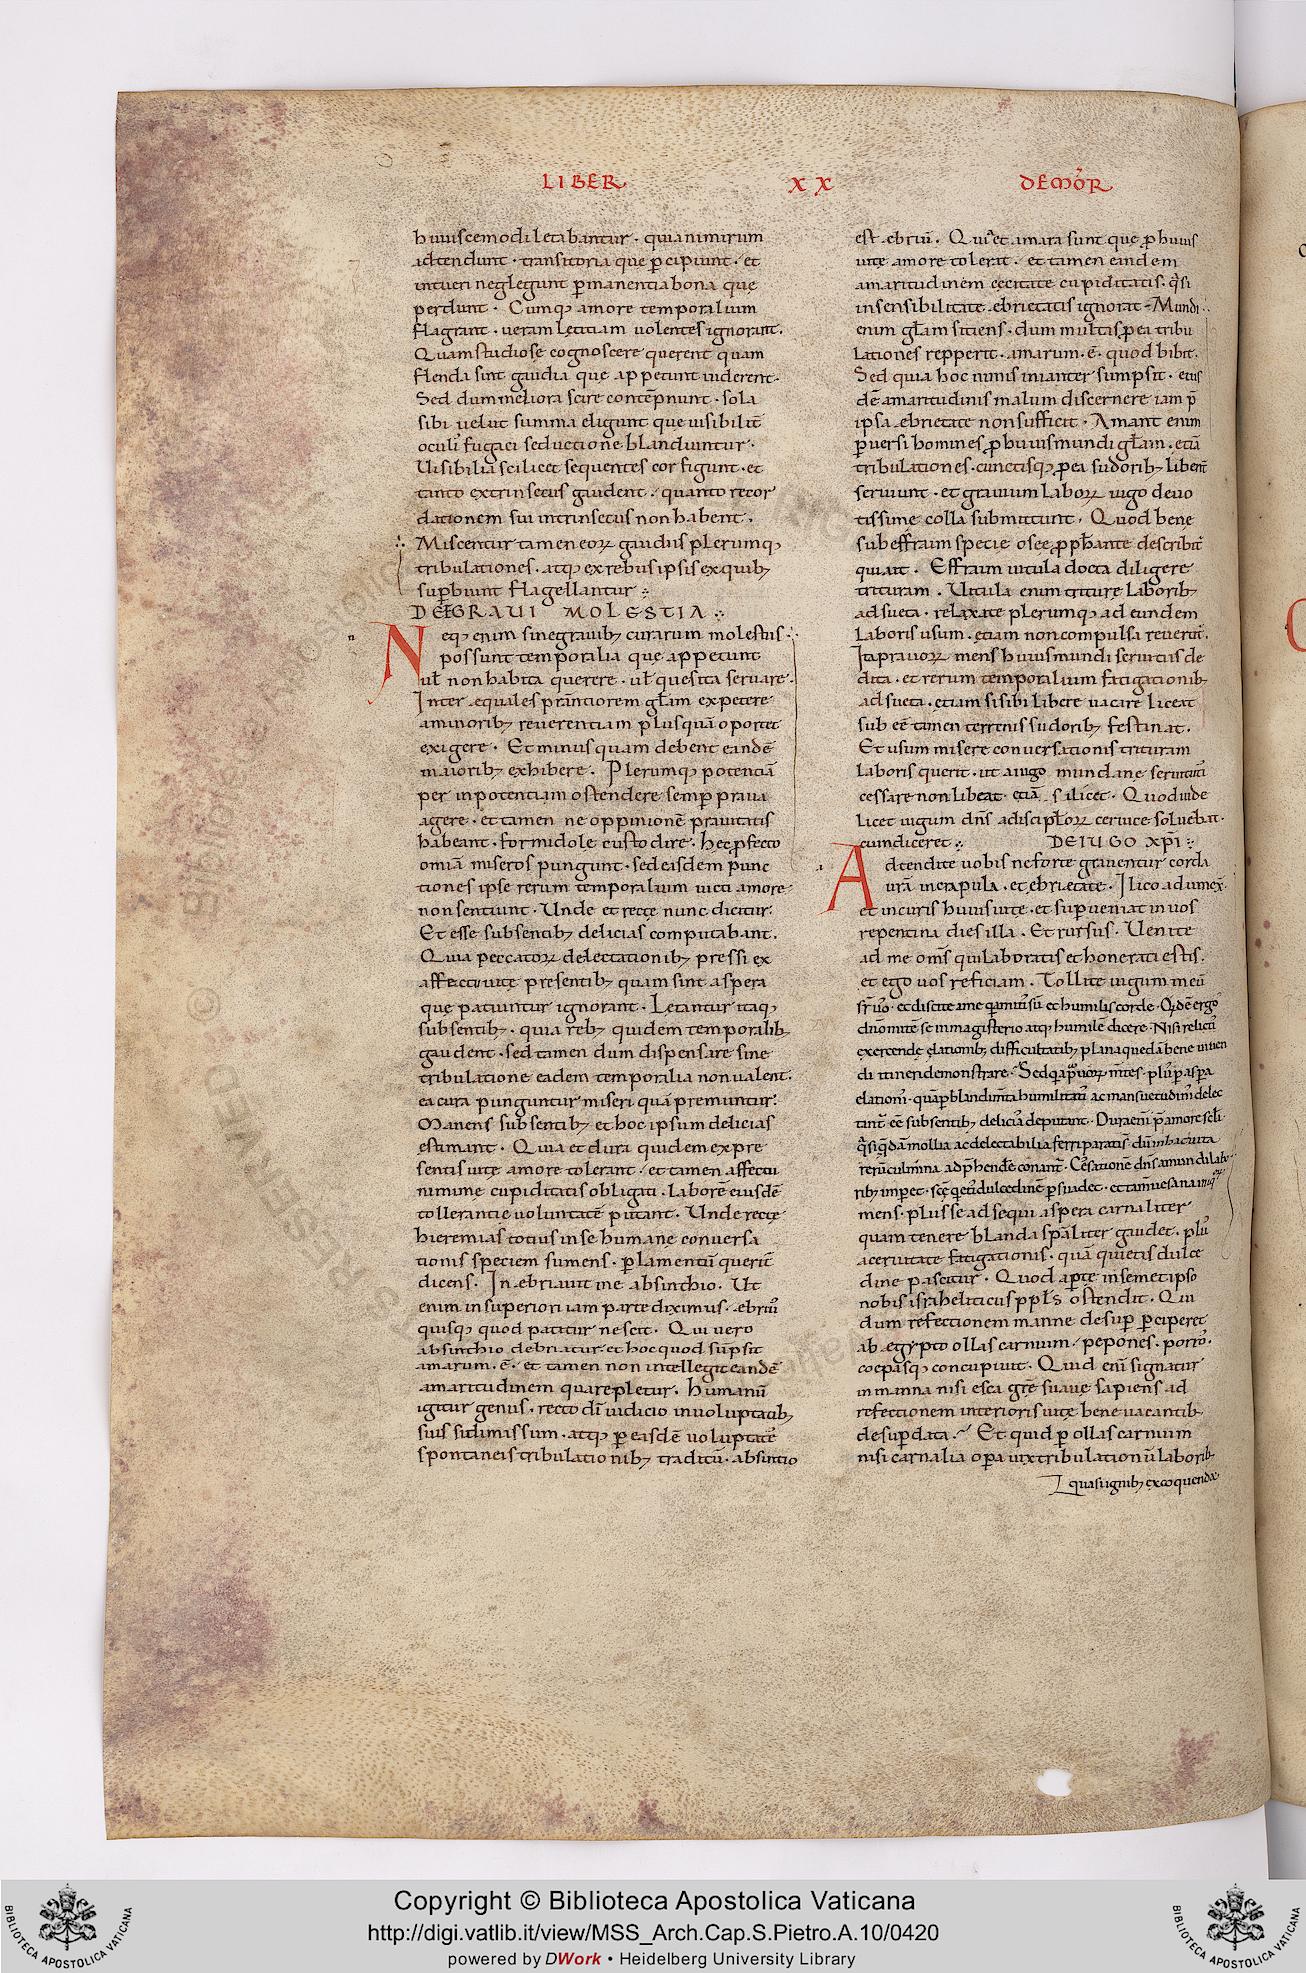 LIBER XX DE MOR̄
huiuscemodi letabantur · quia nimirum
adtendunt · transitoria que p̄cipiunt · et
intueri neglegunt p̄manentia bona que
perdunt · Cumq; amore temporalium
flagrant · ueram letitiam uolentes ignorant.
Quam studiose cognoscere querent quam
flenda sint gaudia que appetunt uiderent ·
Sed dum meliora scire contēpnunt · sola
sibi uelut summa eligunt que uisibilit̄
oculi fugaci seductione blandiuntur ·
Uisibilia scilicet sequentes cor figunt · et
tanto extrinsecus gaudent · quanto recor
dationem sui intrinsecus non habent ·
Miscentur tamen eoꝝ gaudiis plerumq;
tribulationes · atq; ex rebus ipsis ex quib;
sup̄biunt flagellantur ∴
DE GRAUI MOLESTIA ∴
Neq; enim sine grauib; curarum molestiis ·
possunt temporalia que appetunt
ul̄ non habita querere · ul̄ quesita seruare ·
Inter equales prāntiorem gl̄am expetere
a minorib; reuerentiam plus quā oportet
exigere · Et minus quam debent eandē
maiorib; exhibere · Plerumq; potentiā
per inpotentiam ostendere semp̄ praua
agere · et tamen ne oppinionē prauitatis
habeant · formidole custodire · Hec p̄fecto
omīa miseros pungunt · sed eisdem punc
tiones ipse rerum temporalium uicti amore ·
non sentiunt · Unde et recte nunc dicitur:
Et esse sub sentib; delicias computabant ·
Quia peccatoꝝ delectationib; pressi ex
affectu uite presentib; quam sint aspera
que patiuntur ignorant · Letantur itaq;
sub sentib; · quia reb; quidem temporalib;
gaudent · sed tamen dum dispensare sine
tribulatione eadem temporalia non ualent ·
ea cura punguntur miseri qua premuntur:
Manens sub sentib; et hoc ipsum delicias
estimant · Quia et dura quidem ex pre
sentis uite amore tolerant · et tamen affectu
nimiune cupiditatis obligati · laborē eiusdē
tollerantie uoluntatē putant · Unde recte
hieremias totius in se humane conuersa
tionis speciem sumens · p̄ lamentū querit̄
dicens · Inebriauit me absinthio · Ut
enim in superiori iam parte diximus · ebriū
quisq; quod patitur nescit · Qui uero
absinthio debriatur et hoc quod sūpsit
amarum · ē · et tamen non intellegit eandē
amaritudinem qua repletur · humanū
igitur genus · recto dī iudicio in uoluptatib;
suis sibi dimassum · atq; p̄ easdē uoluptates
spontaneis tribulationib; traditū · absintio
est ebriū · Quī et amara sunt que p̄ huius
uite amore tolerat · et tamen eandem
amaritudinem cecitate cupiditatis · q̄si
insensibilitate ebrietatis ignorat · Mundi
enim gl̄am sitiens · dum multas p̄ ea tribu
lationes repperit · amarum · ē · quod bibit ·
Sed quia hoc nimis inianter sumpsit · eius
dē amaritudinis malum discernere iam p̄
ipsa ebrietate non sufficit · Amant enim
p̄uersi homines p̄ huius mundi gl̄am · etiā
tribulationes · cunctisq; p̄ ea sudorib; libent̄
seruiunt · et grauium laboꝝ iugo deuo
tissime colla submittunt · Quod bene
sub effraim specie osee p̄ph̄ante describit̄
qui ait · Effraim uitula docta diligere
trituram · Uitula enim triture laborib;
adsueta · relaxate plerumq; ad eundem
laboris usum · etiam non compulsa reuertit̄ ·
Ita prauoꝝ mens huius mundi seruitus de
dita · et rerum temporalium fatigationib;
adsueta · etiam si sibi libere uacare liceat
subeē tamen terrenis sudorib; festinat ·
Et usum misere conuersationis trituram
laboris querit · ut a iugo mundane seruituti
cessare non libeat · etiā si licet · Quod uide
licet iugum dn̄s a discipl̄oꝝ ceruice soluebat ·
cum diceret ∴ DE IUGO XPĪ ∴
Adtendite uobis ne forte grauentur corda
urā in crapula · et ebrietate · Ilico adunex̄
et in curis huius uite · et sup̄ueniat in uos
repentina dies illa · Et rursus · Uenite
ad me om̄s qui laboratis et honerati estis ·
et ego uos reficiam · Tollite iugum meū
sr̄ uo · et discite a me q̄a mitis sū et humilis corde · Qd̄ ē ergo
dn̄o mitē se in magisterio atq; humilē dicere · Nisi relictis
exercende elationib; difficultatib; plana quedā bene uiuen
di itineri demonstrare · Sed q̄a p̄uoꝝ m̄tes · plus p̄ aspera
elationi · quā p̄ blandim̄ta humilitatis ac mansuetudinis delec
tant̄ · eē sub sentib; delicias deputant · Dura eni p̄ amore sc̄li
q̄si q̄dā mollia ac delectabilia ferri paratis · dū in hac uita
rerū culmina adp̄hendere conant̄ · Cessationē dn̄s a mundi labo
rib; imperet · sc̄e quietis dulcedinē p̄suadet · et tam̄ uesana iniq̄
mens · plus se ad sequi aspera carnaliter
quam tenere blanda sp̄aliter gaudet · plus
acerbitate fatigationis · quā quietis dulce
dine pascitur · Quod ap̄te in semet ipso
nobis israheliticus ppl̄s ostendit · Qui
dum refectionem manne desup̄ p̄ciperet
ab egypto ollas carnium · pepones · porros ·
coepasq; concupiuit · Quid eni signatur
in manna nisi esca gr̄e suaue sapiens ad
refectionem interioris uite bene uacantib;
desup̄ data · Et quid p̄ ollas carnium
nisi carnalia op̄a uix tribulationū laborib;
quasi ignib; excoquenda
Copyright © Biblioteca Apostolica Vaticana
http://digi.vatlib.it/view/MSS_Arch.Cap.S.Pietro.A.10/0420
powered by DWork • Heidelberg University Library
BIBLIOTECA APOSTOLICA VATICANA
BIBLIOTECA APOSTOLICA VATICANA